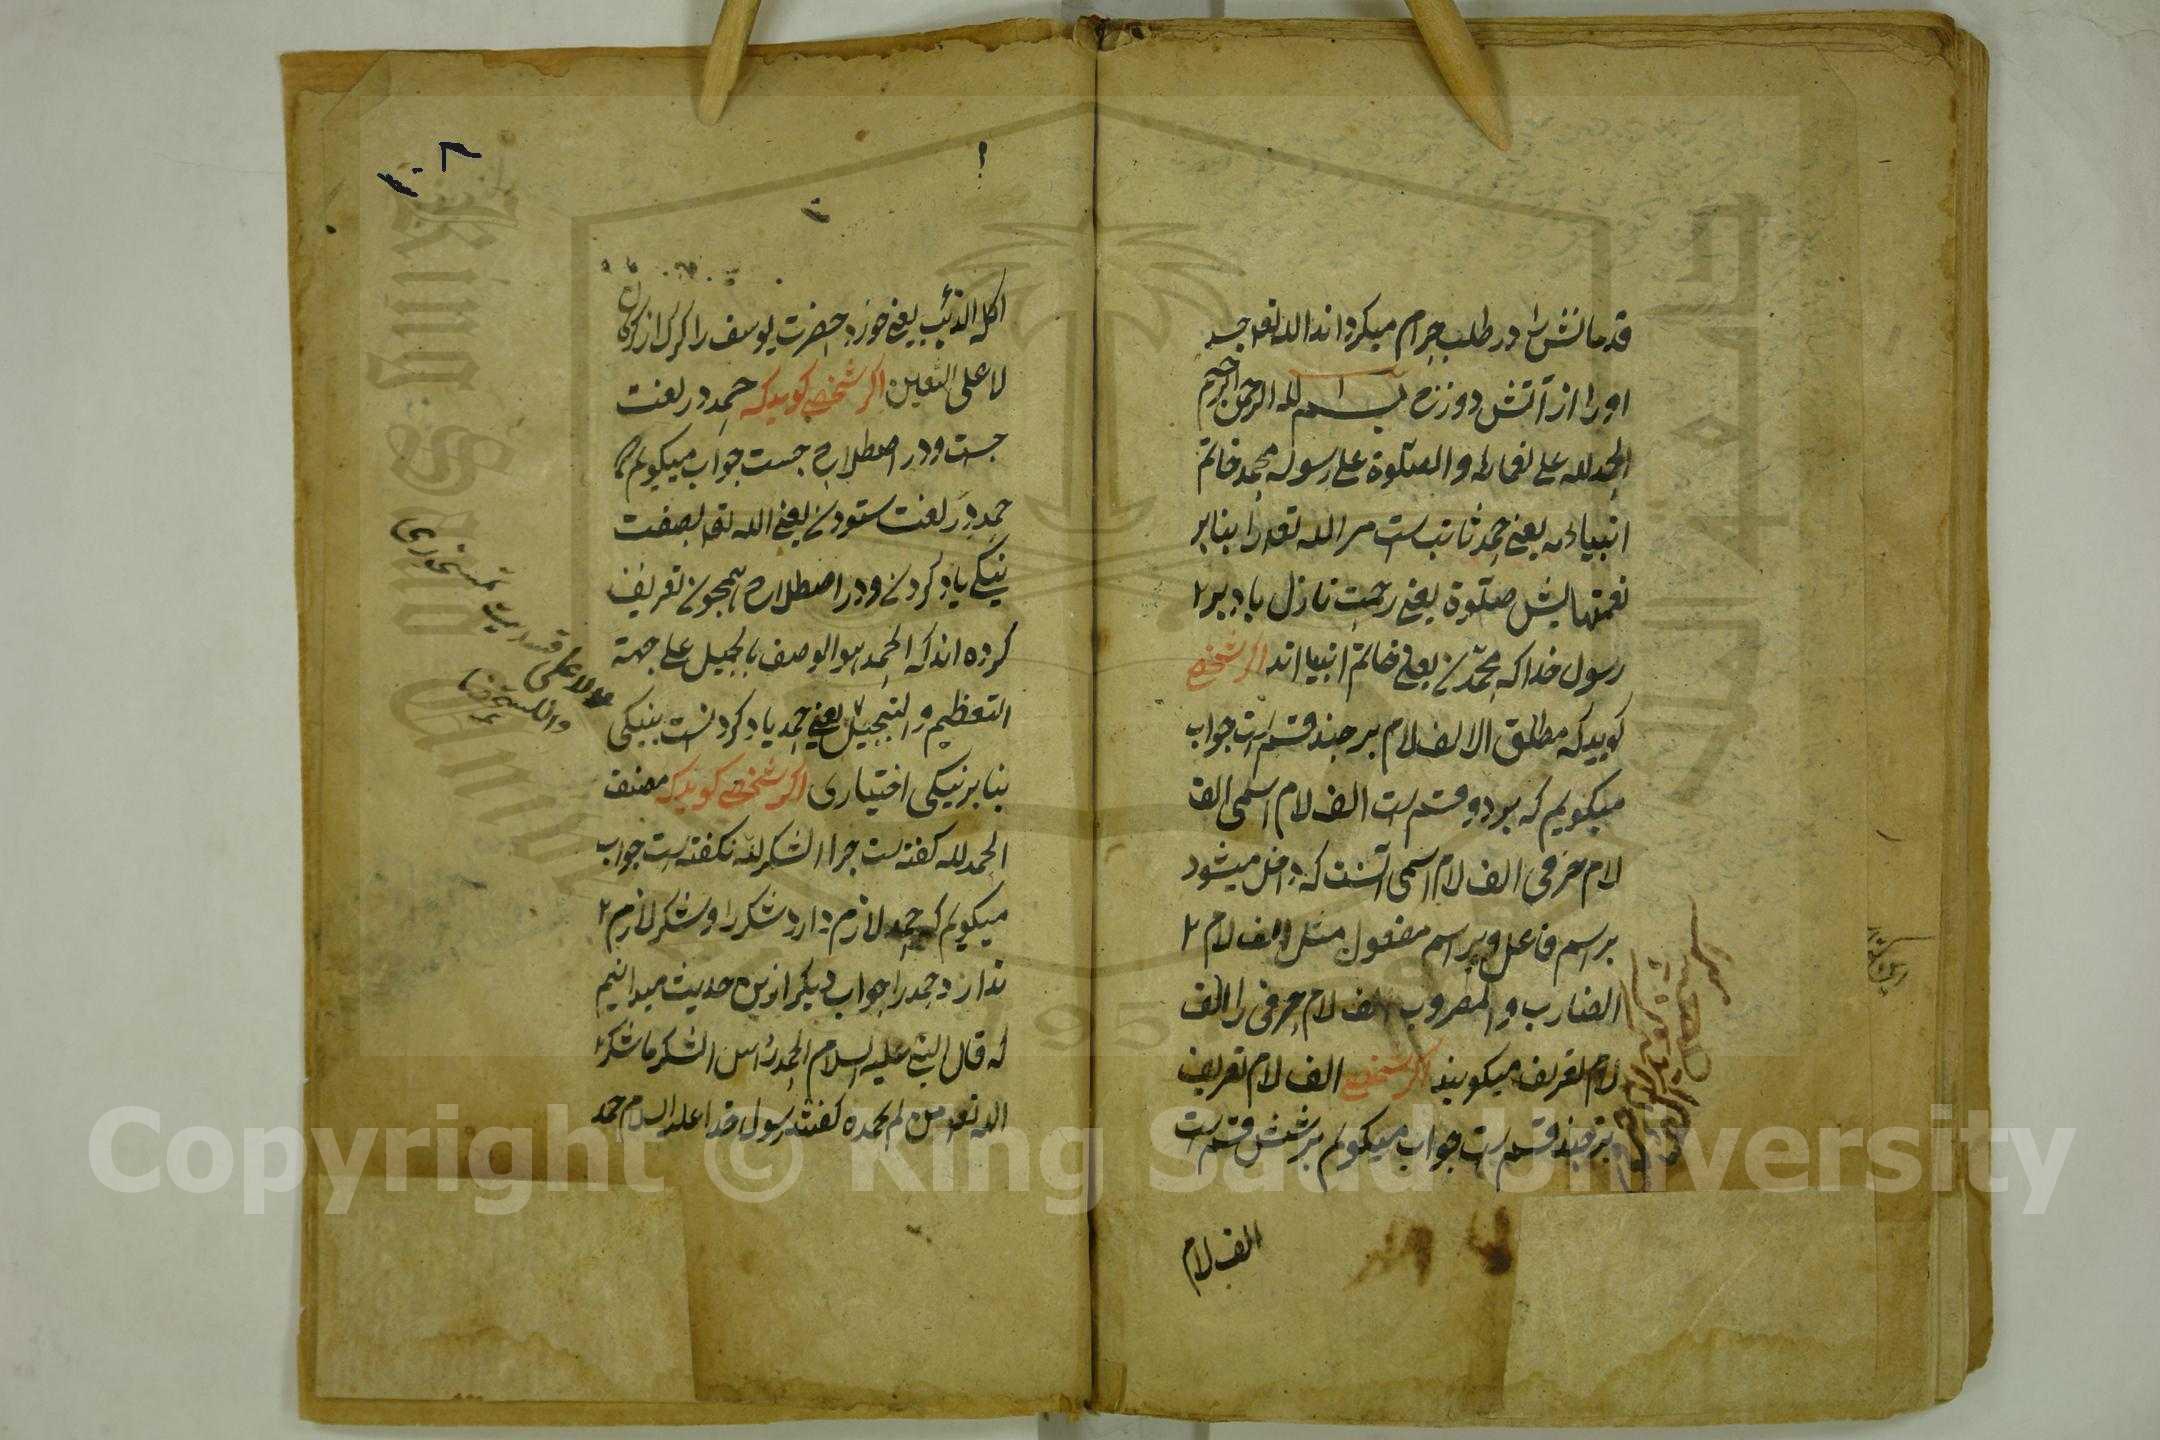 قدمانش را در طلب حرام میکرداند الله تعه جسد
او را از آتش دوزخ بسم الله الرحمن الرحیم
الحمد لله علی نعمائه و الصلوة علی رسوله محمد خاتم
انبیاءه یعنی حمد ثابت ست مر الله تعه را بنابر
نعمتهایش صلوة یعنی رحمت نازل باد بر
رسول خدا که محمد یعنی خاتم انبیا اند اکر شخصی
کوید که مطلق الالف لام بر چند قسم ست جواب
میکویم که بر دو قسم ست الف لام اسمی الف
لام حرفی الف لام اسمی آنست که داخل میشود
بر اسم فاعل و بر اسم مفعول مثل الف لام
الضارب و المضروب الف لام حرفی را الف
لام تعریف میکویند اکر شخصی الف لام تعریف
بر چند قسم ست جواب میکویم بر شش قسم ست
الف لام
١٠٨
اکل الذئب یعنی خورد حضرت یوسف را کرک از کرکان
لا علی التعین اکر شخصی کوید که حمد در لغت
چست و در اصطلاح چست جواب میکویم که
حمد در لغت ستودن یعنی الله تعه بصفت
نیکی یاد کردن و در اصطلاح همچون تعریف
کرده اند که الحمد هو الوصف بالجمیل علی جهة
التعظیم و التبجیل یعنی حمد یاد کردنست بنیکی
بنا بر نیکی اختیاری اکر شخصی کوید که مصنف
الحمد لله کفته ست چرا الشکر لله نکفته ست جواب
میکویم که حمد لازم دارد شکر را و شکر لازم
ندارد حمد را جواب دیکر ازین حدیث میدانیم
که قال النبی علیه السلام الحمد راس الشکر ما شکر
الله تعه من لم یحمده کفتند رسول خدا علیه السلام حمد
Copyright © King Saud University